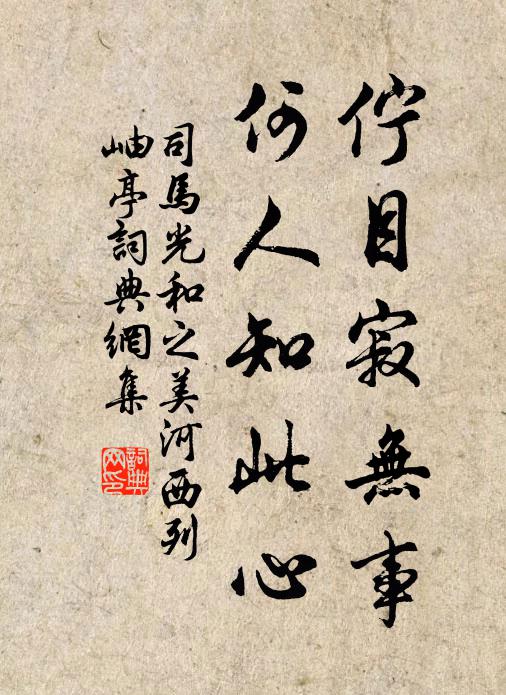 佇目寂無事
何人知此心
司馬光和之美河西列
岫亭詞典網集
詞典網印